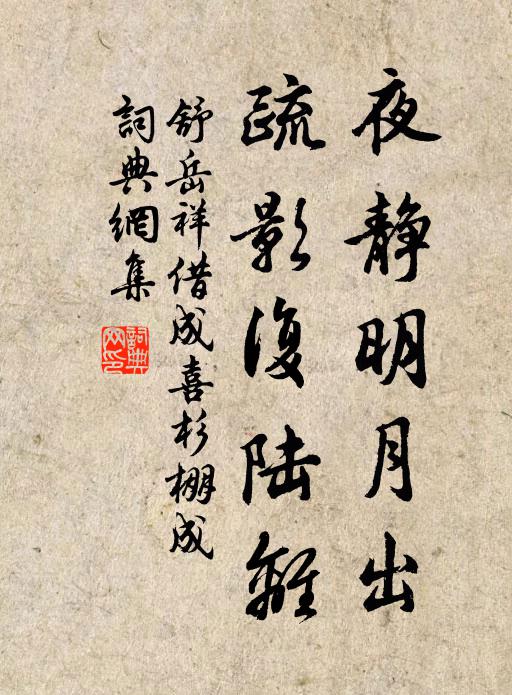 夜静明月出
疏影復陆離
舒岳祥借成喜杉棚成
詞典網集
詞典网印